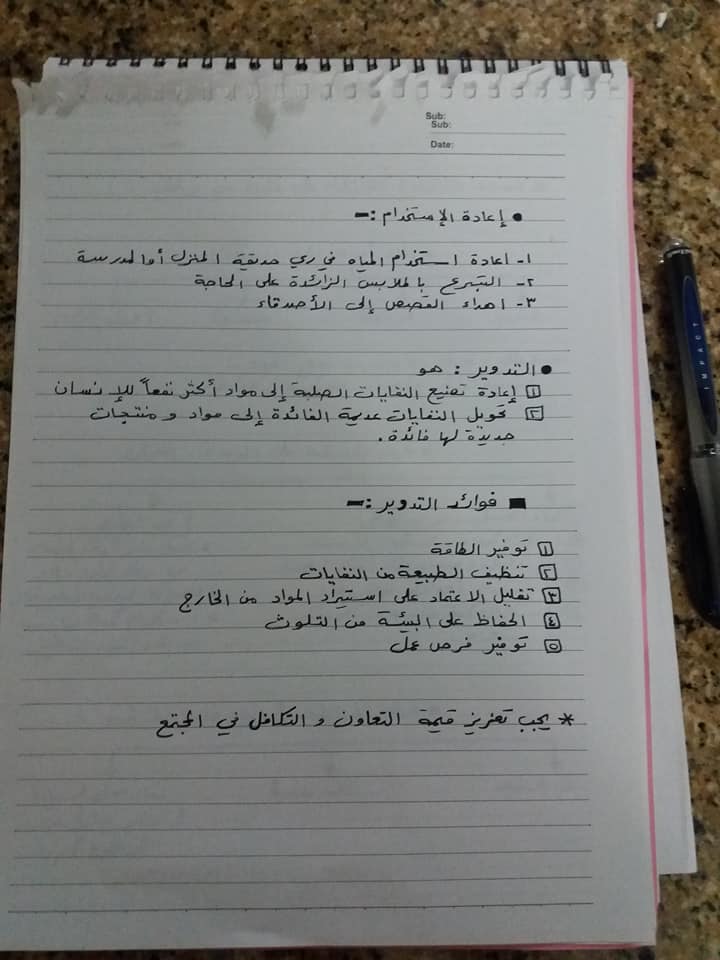 Sub:
Sub:
Date:
● إعادة الإستخدام :-
١- اعادة استخدام المياه في ري حديقة المنزل أو المدرسة
٢- التبرع بالملابس الزائدة على الحاجة
٣- اهداء القصص إلى الأصدقاء
● التدوير : هو
١ إعادة تصنيع النفايات الصلبة إلى مواد أكثر نفعاً للإنسان
٢ تحويل النفايات عديمة الفائدة إلى مواد و منتجات
جديدة لها فائدة .
■ فوائد التدوير :-
١ توفير الطاقة
٢ تنظيف الطبيعة من النفايات
٣ تقليل الاعتماد على استيراد المواد من الخارج
٤ الحفاظ على البيئة من التلوث
٥ توفير فرص عمل
* يجب تعزيز قيمة التعاون و التكافل في المجتمع
IMPACT